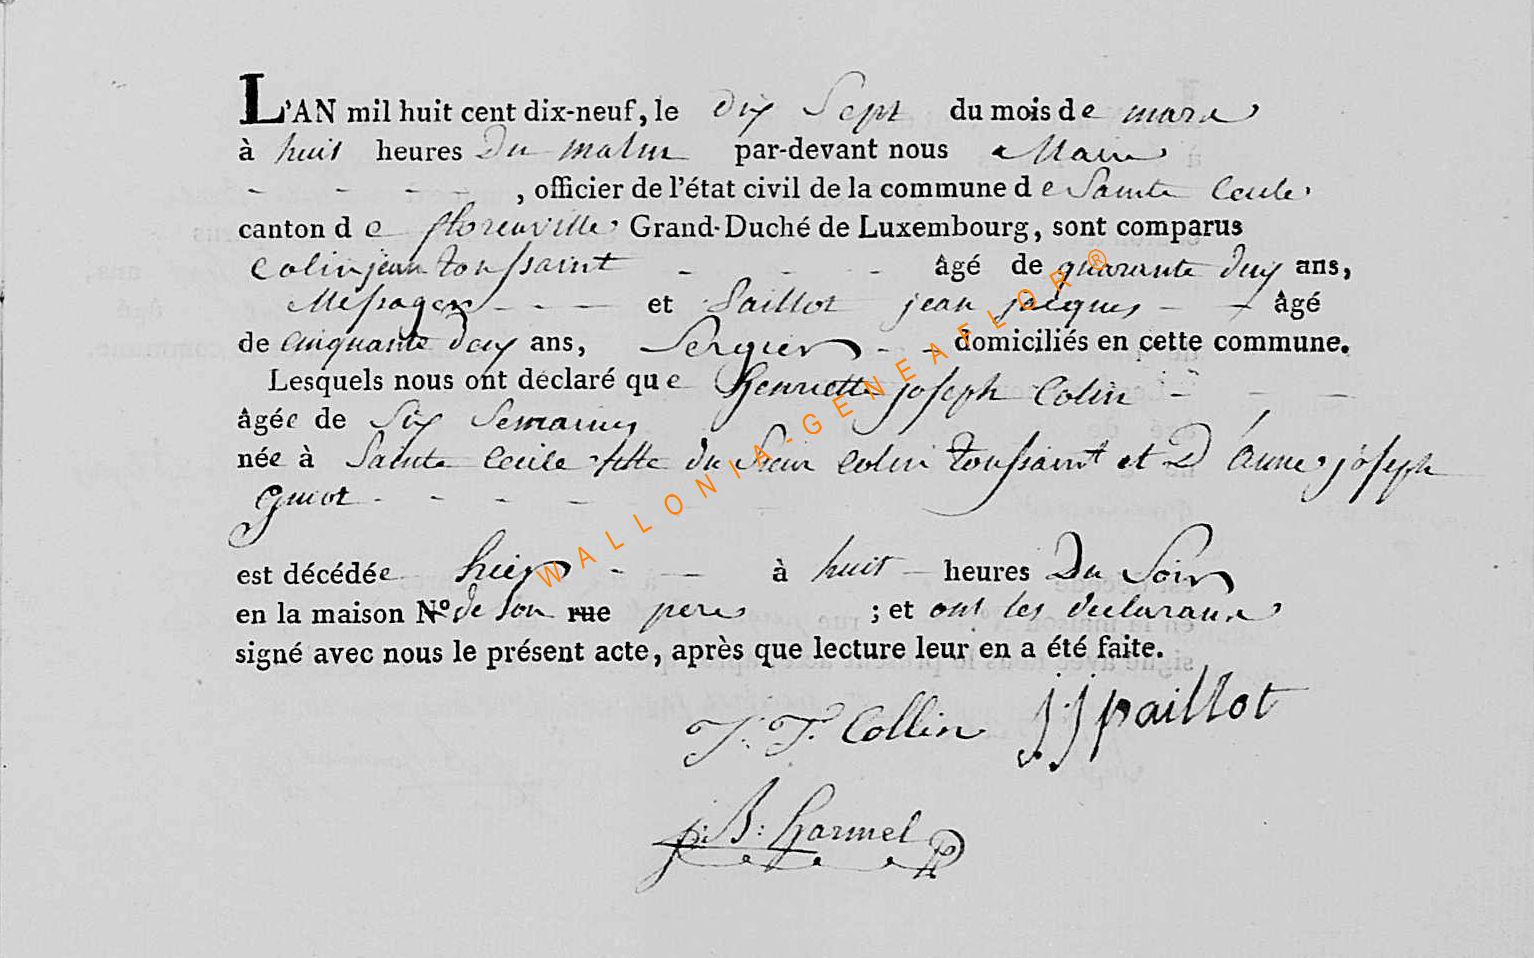 L'AN mil huit cent dix-neuf, le dix Sept du mois de mars
à huit heures Du matin par-devant nous Maire
- - - - , officier de l'état civil de la commune de Sainte Cecile
canton de florenville Grand-Duché de Luxembourg, sont comparus
Colin jean toussaint - - - âgé de quarante deux ans,
Messager - - - et Paillot jean jacques - - âgé
de cinquante deux ans, Sergier - - domiciliés en cette commune.
Lesquels nous ont déclaré que henriette joseph Colin - - -
âgée de Six Semaines
née à Sainte Cecile fille du Sieur Colin toussaint et D'anne joseph
Guiot - - - - -
est décédée hier - - à huit - heures Du Soir
en la maison N.º de son rue pere ; et ont les declarans
signé avec nous le présent acte, après que lecture leur en a été faite.
J. T. Collin jj paillot
j: B: harmel
WALLONIA-GENEAFLOR®